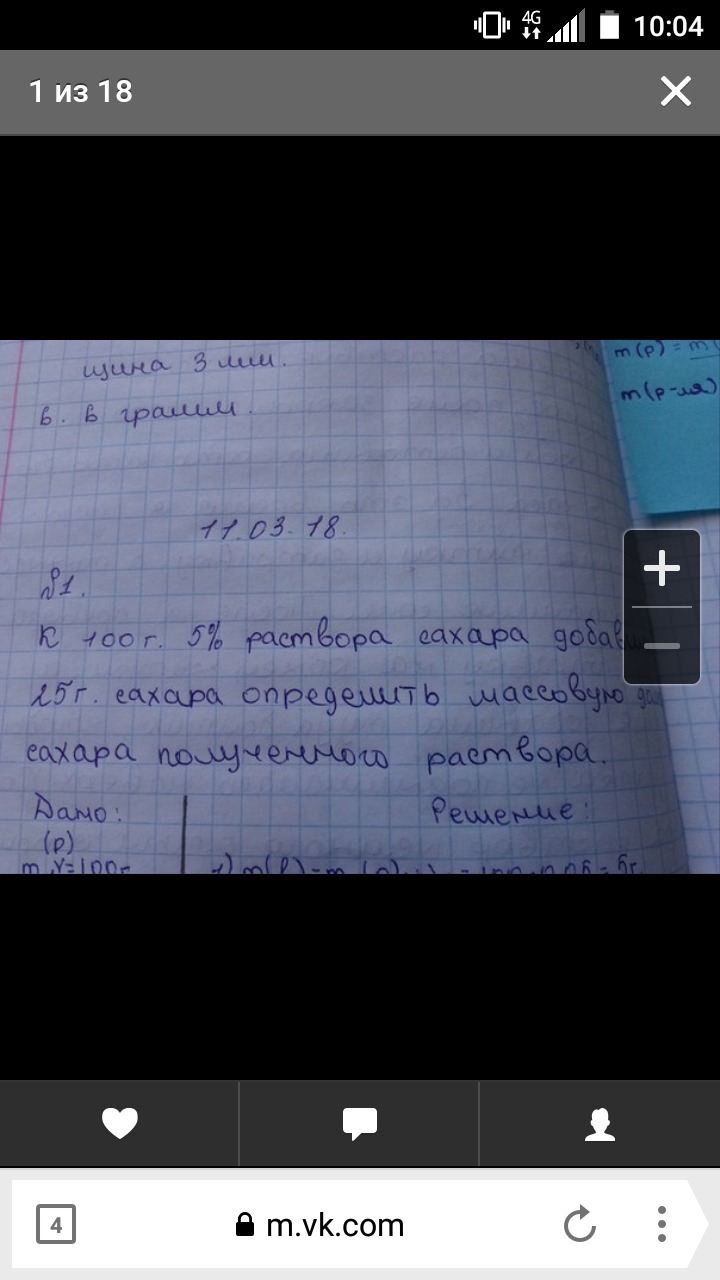 4G 10:04
1 из 18
щина 3 мм.
в. в грамм.
m(р) = m(
m(р-ля)
11.03.18.
№1.
К 100г. 5% раствора сахара
25г. сахара определить массовую
сахара полученного раствора.
Дано: Решение:
(р)
4
m.vk.com